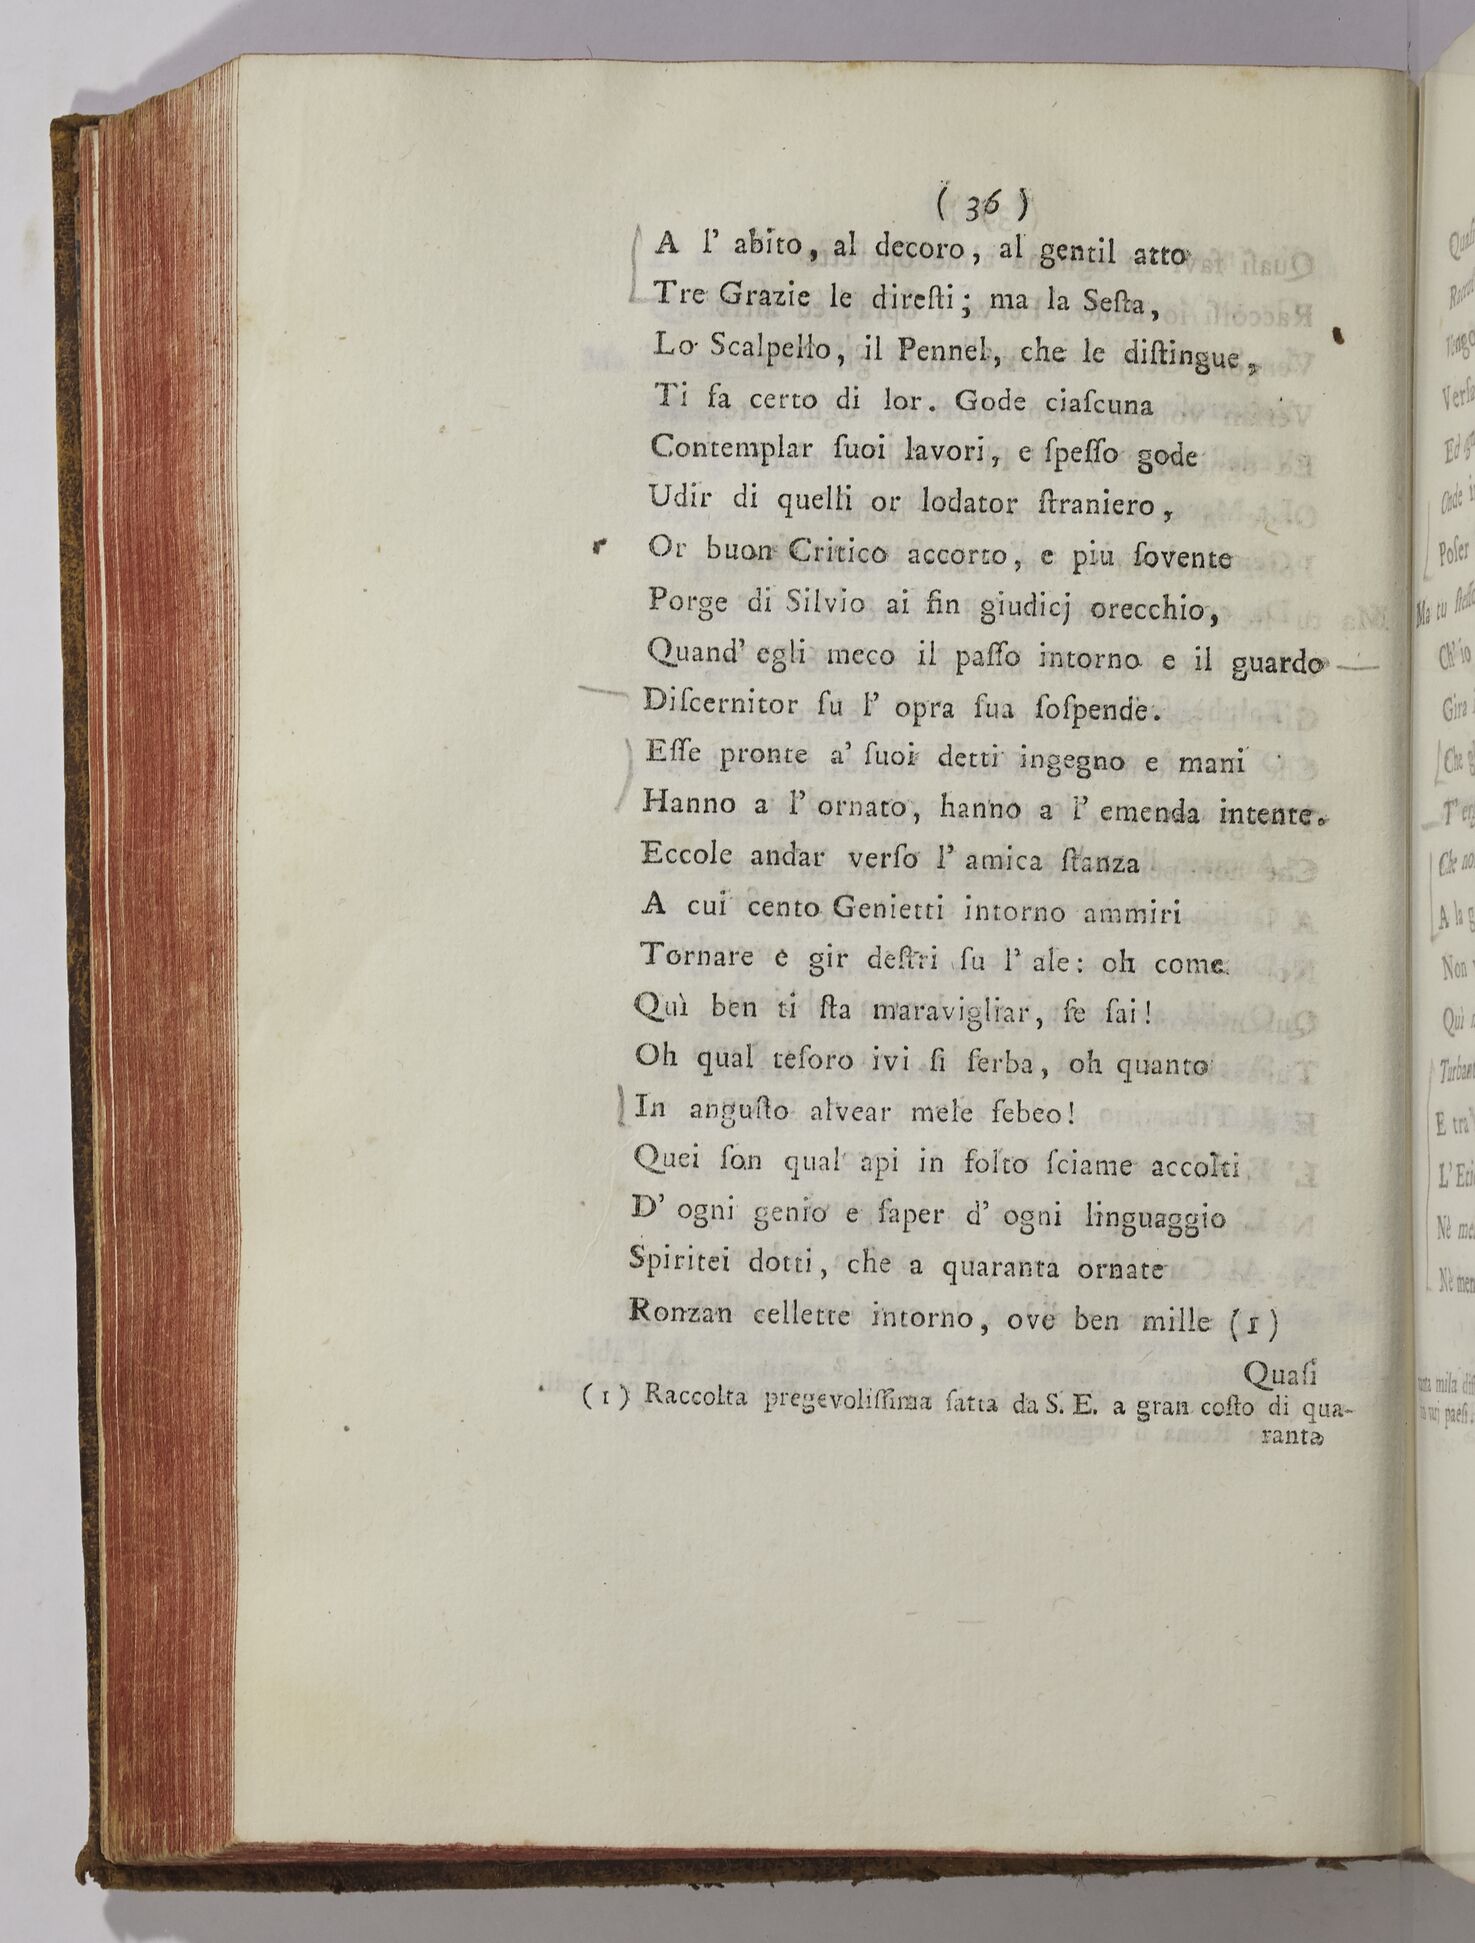 ( 36 )
A l' abito, al decoro, al gentil atto
Tre Grazie le direſti; ma la Seſta,
Lo Scalpello, il Pennel, che le diſtingue,
Ti fa certo di lor. Gode ciaſcuna
Contemplar ſuoi lavori, e ſpeſſo gode
Udir di quelli or lodator ſtraniero,
Or buon Critico accorto, e piu ſovente
Porge di Silvio ai fin giudicj orecchio,
Quand' egli meco il paſſo intorno e il guardo
Diſcernitor ſu l' opra ſua ſoſpende.
Eſſe pronte a' ſuoi detti ingegno e mani
Hanno a l' ornato, hanno a l' emenda intente.
Eccole andar verſo l' amica ſtanza
A cui cento Genietti intorno ammiri
Tornare e gir deſtri ſu l' ale: oh come
Quì ben ti ſta maravigliar, ſe ſai!
Oh qual teſoro ivi ſi ſerba, oh quanto
In anguſto alvear mele febeo!
Quei ſon qual api in folto ſciame accolti
D' ogni genio e ſaper d' ogni linguaggio
Spiritei dotti, che a quaranta ornate
Ronzan cellette intorno, ove ben mille (1)
Quaſi
(1) Raccolta pregevoliſſima fatta da S. E. a gran coſto di qua-
ranta
Verſa
Ed
Onde
Poſer
Ma tu
Ch' io
Gira
Che
T'
Che
A la
Non
Quì
E tra'
L'
Nè
Nè